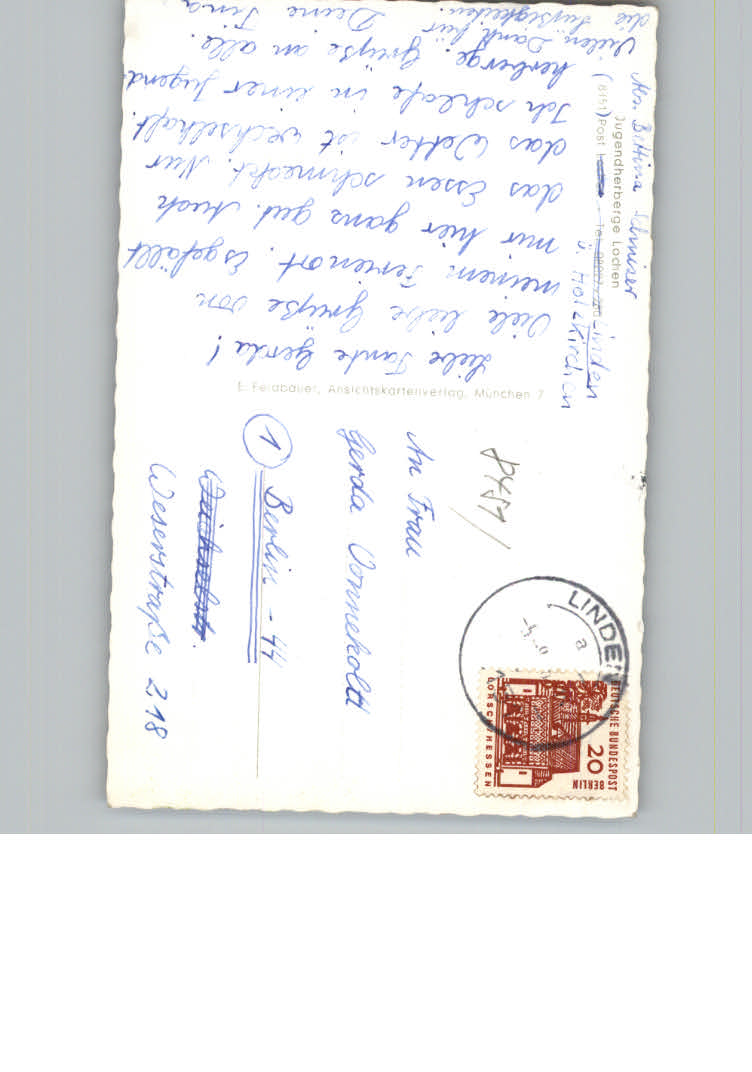 Abs. Bettina Schmiser
Jugendherberge Lochen
(8151) Post
Linden
ü. Holzkirchen
Liebe Tante Gerda!
Viele liebe Grüße von
meinem Ferienort. Es gefällt
mir hier ganz gut. Auch
das Essen schmeckt. Nur
das Wetter ist wechselhaft.
Ich schlafe in einer Jugend
herberge. Grüße an alle.
Vielen Dank für Deine Tina
die Süßigkeiten.
E. Feldbauer, Ansichtskartenverlag, München 7
8151
An Frau
Gerda Vonneholdt
1 Berlin - 44
Weserstraße 218
LINDEN
a
DEUTSCHE BUNDESPOST
BERLIN
20
LORSCH/HESSEN